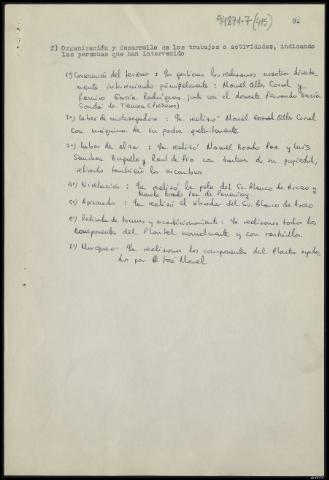 94871-7 (415)
92
2) Organización y desarrollo de los trabajos o actividades, indicando
las personas que han intervenido
1º) Concesión del terreno : Las gestiones las realizamos nosotros directa-
mente interviniendo principalmente : Manuel Alles Canal y
Ramiro García Rodríguez junto con el donante Fernando García
2º) Labor de motosegadora : La realizó Manuel Alles Canal
con máquina de su padre gratuitamente
3º) Labor de : La realizó Manuel Bordo Paz y Luis
Sánchez y Raul de Pío con tractor de su propiedad,
retirando también los escombros
4º) Nivelación : La realizó la pala del Sr. Blanco de Arceo y
Manuel Bordo Paz de
5º) Apisonado : La realizó el del Sr. Blanco de Arceo
6º) Retirada de terreno y acondicionamiento : La realizamos todos los
componentes del Plantel manualmente y con rastrillos
7º) Marqueo : La realizaron los componentes del Plantel ayuda-
dos por D. José Manuel